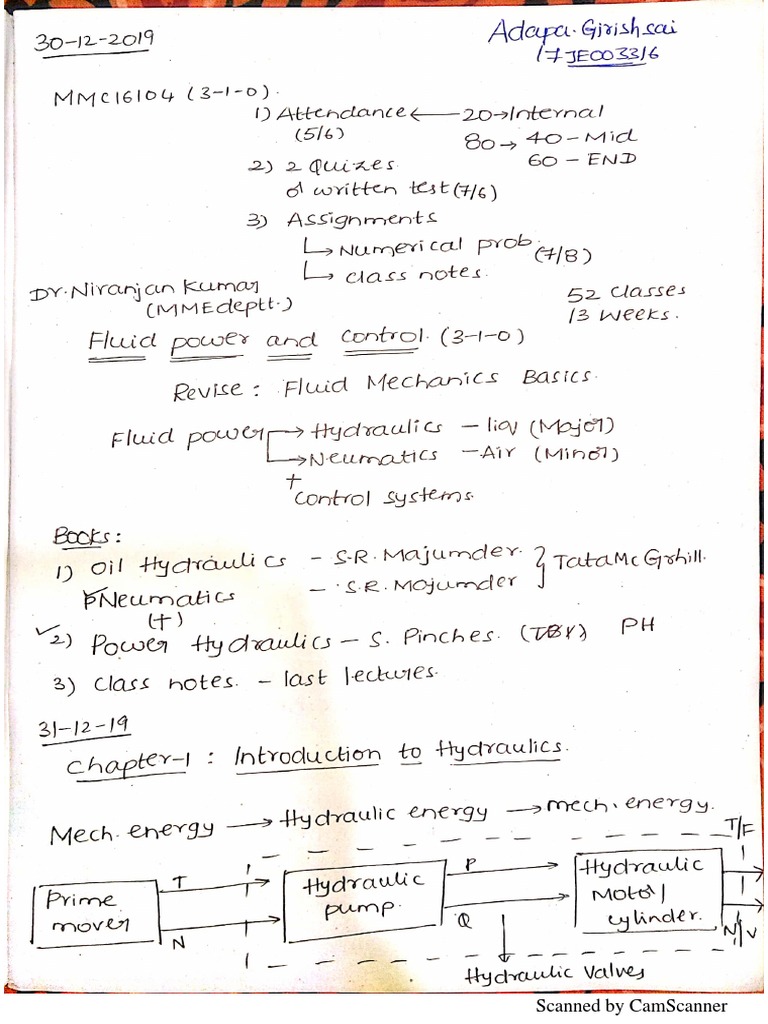 30-12-2019
Adapa. Girish sai
17JE003316
MMC16104 (3-1-0).
1) Attendance ← 20→Internal
(5/6)
80→ 40-Mid
60 - END
2) 2 Quizes
or written test (7/6)
3) Assignments
↳ Numerical prob. (7/8)
↳ class notes.
Dr. Niranjan Kumar
(MME deptt.)
52 classes
13 weeks.
Fluid power and control. (3-1-0)
Revise : Fluid Mechanics Basics.
Fluid power → Hydraulics - liq (Major)
→ Neumatics - Air (Minor)
+
control systems.
Books :
1) Oil Hydraulics - S.R. Majumder. } Tata McGrhill.
PNeumatics - S.R. Majumder
(+)
✓2) Power Hydraulics - S. Pinches. PH
3) class notes. - last lectures.
31-12-19
chapter-1 : Introduction to Hydraulics.
Mech. energy → Hydraulic energy → mech. energy.
T/F
Prime mover
T
N
Hydraulic pump.
P
Q
Hydraulic Motor/ cylinder.
N/V
Hydraulic valves
Scanned by CamScanner